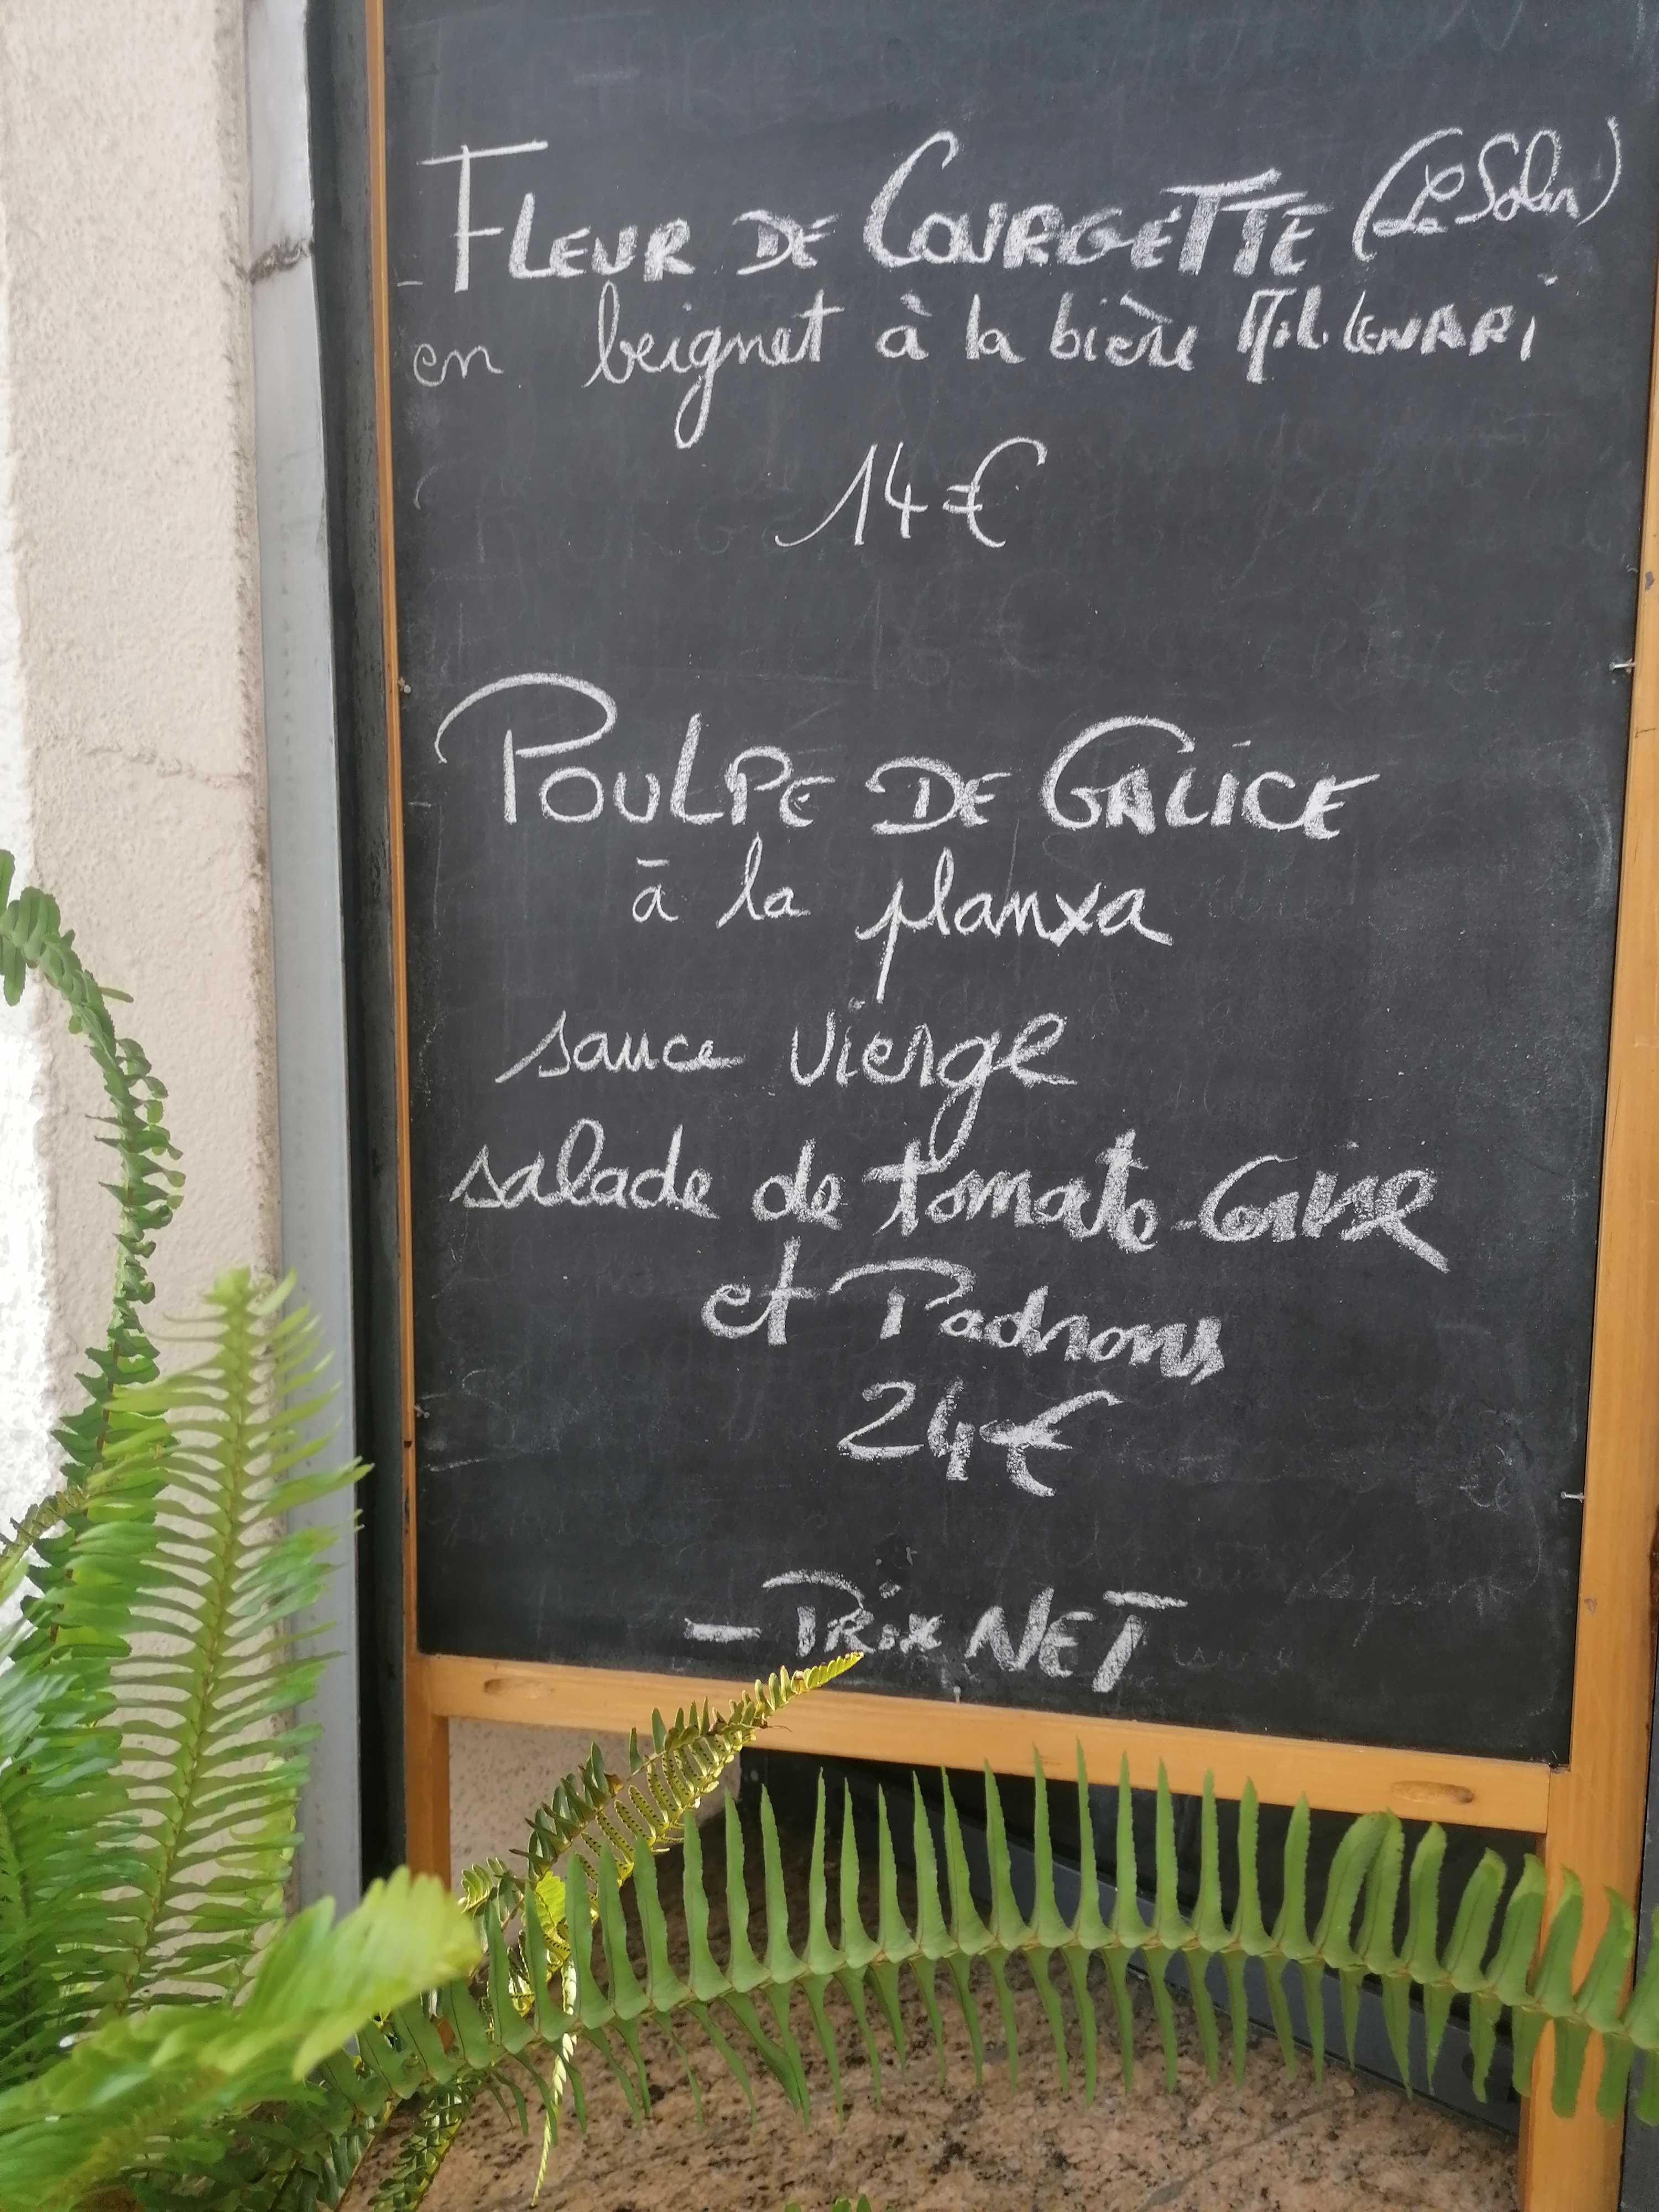 FLEUR DE COURGETTE (Le Soler)
en beignet à la bière Millenari
14€
POULPE DE GALICE
à la planxa
sauce vierge
salade de tomate
et Padrons
24€
- PRIX NET